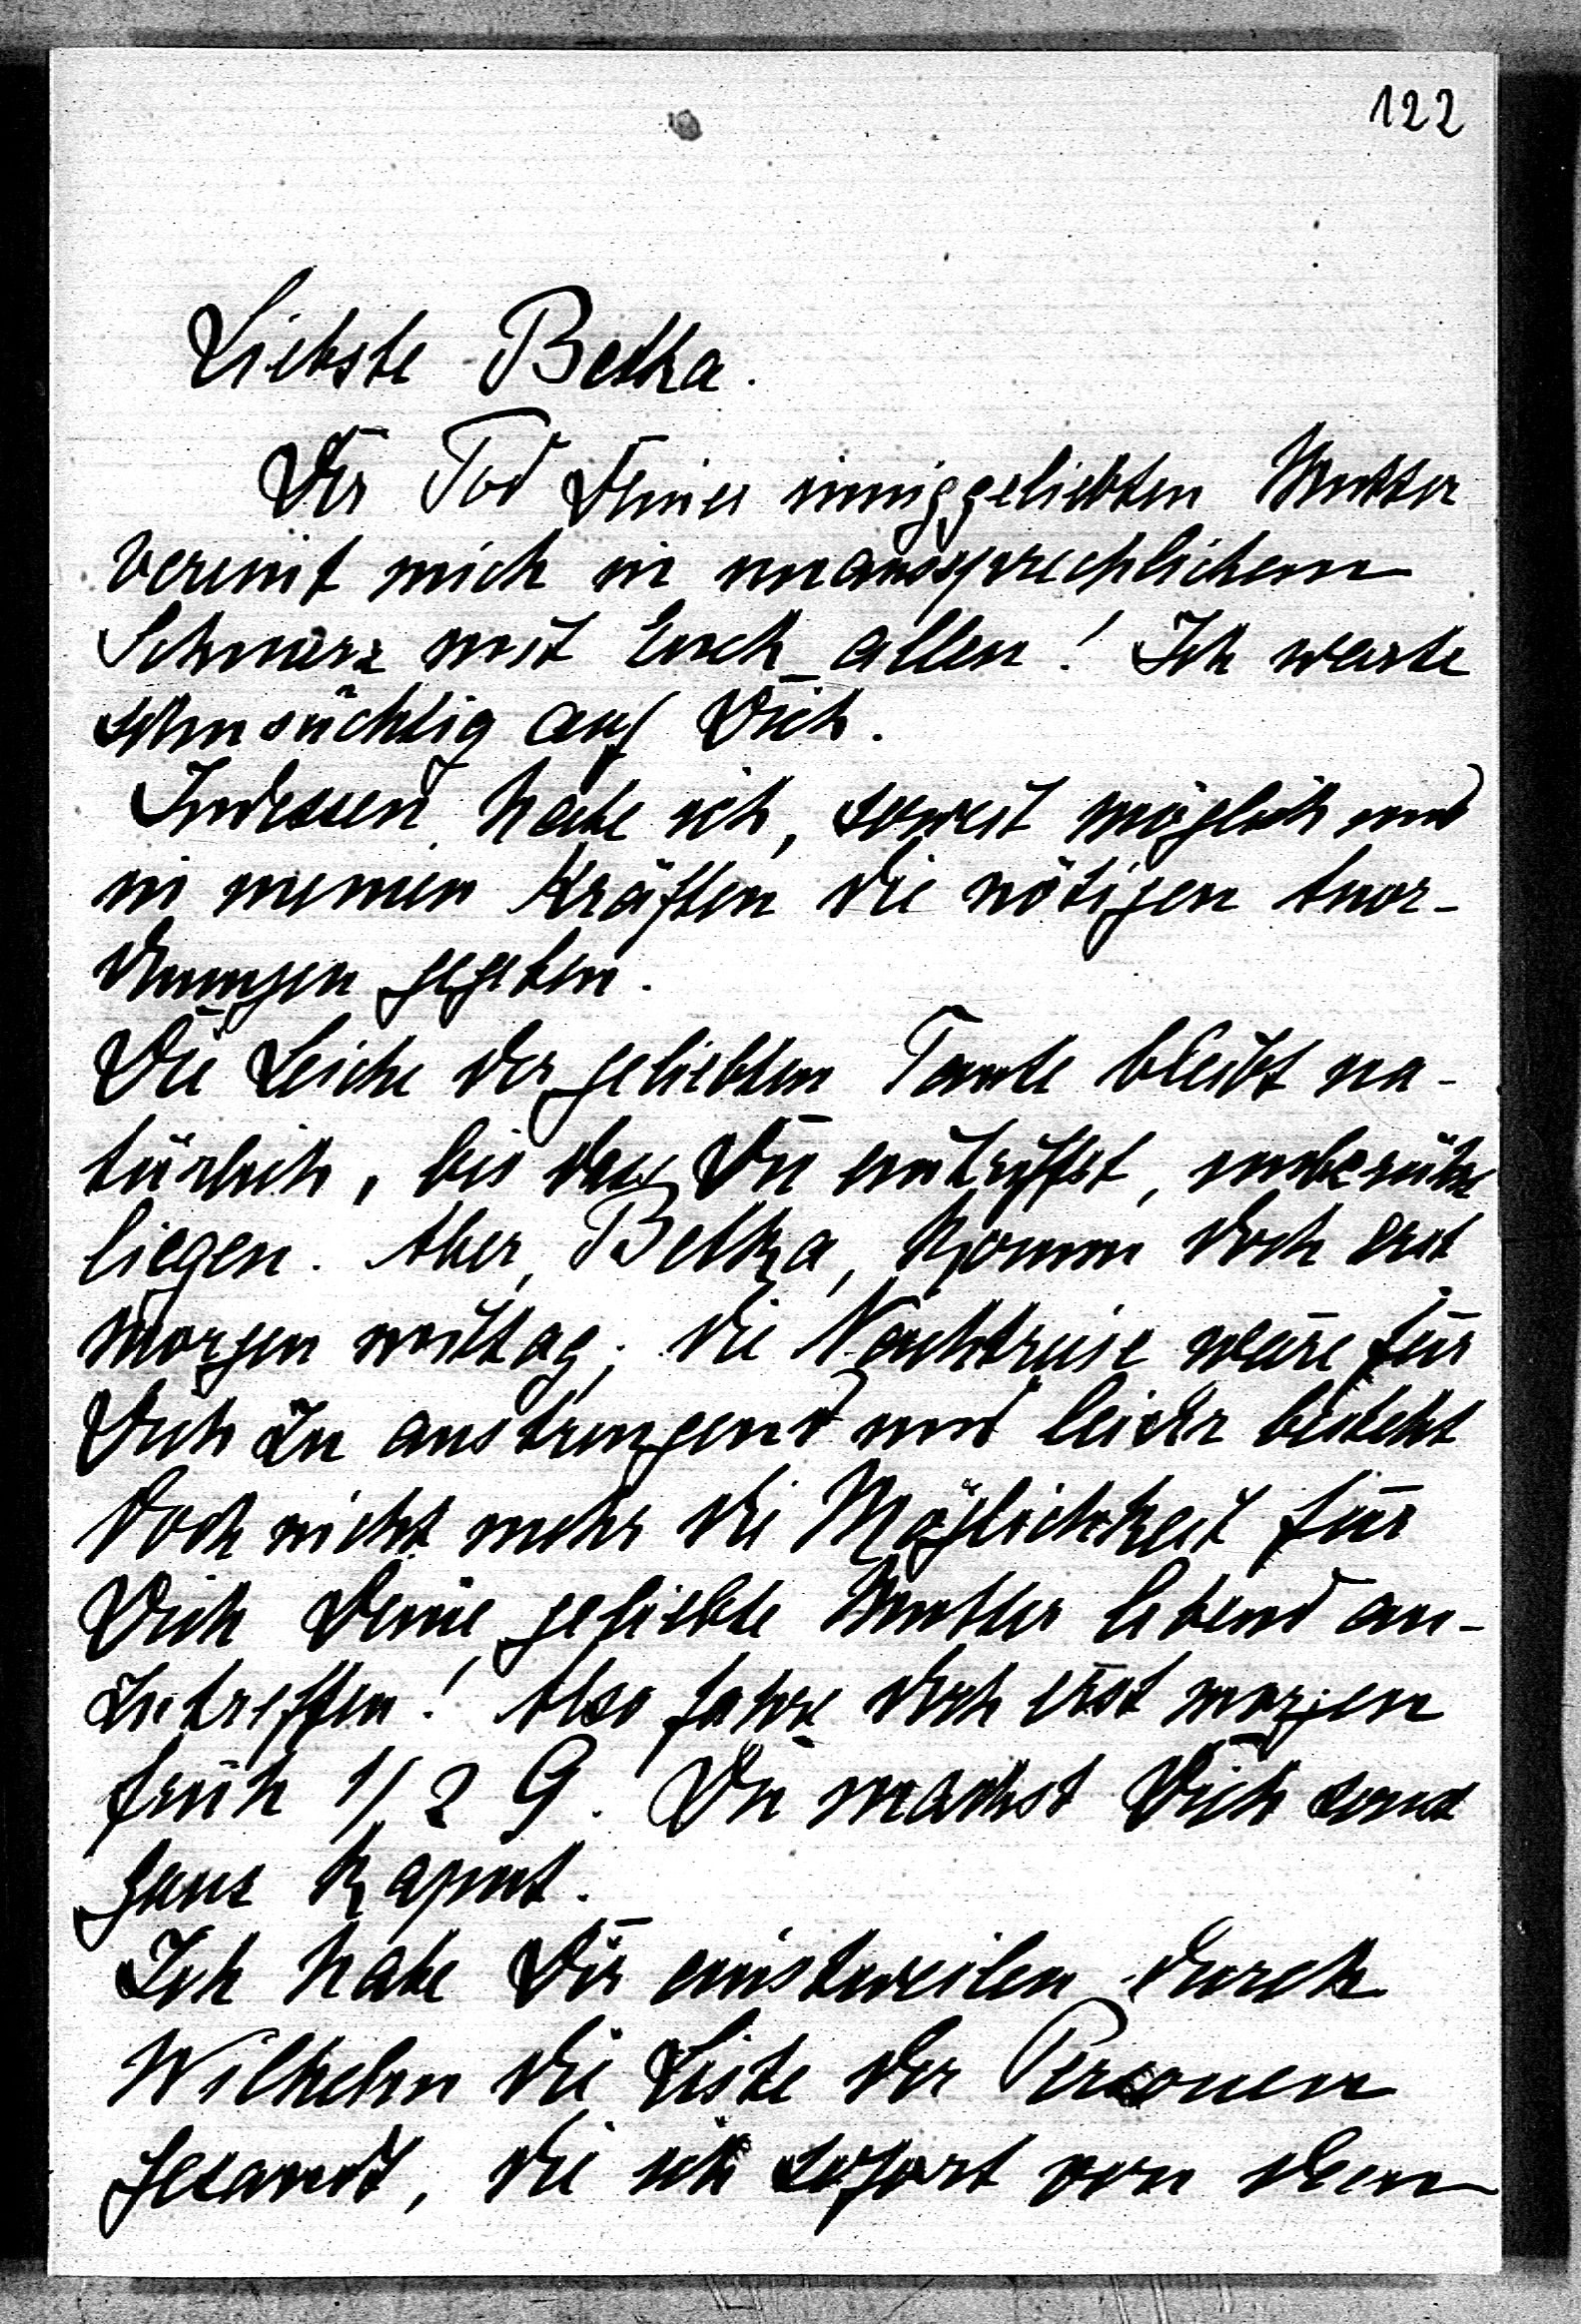 122
Liebste Betka.
Der Tod Deiner inniggeliebten Mutter
vereint mich in unaussprechlichem
Schmerz mit Euch allen! Ich warte
sehnsüchtig auf Dich.
Indessen habe ich, soweit möglich und
in meinen Kräften die nötigen Anor-
dnungen gegeben.
Die Leiche der geliebten Tante bleibt na-
türlich, bis dass Du eintriffst, unberührt
liegen. Aber, Betka, komm doch erst
morgen mittag; die Nachtreise wäre für
Dich zu anstrengend und leider besteht
doch nicht mehr die Möglichkeit für
Dich Deine geliebte Mutter lebend an-
zutreffen! Also fahre doch erst morgen
früh 1/2 9. Du machst Dich sonst
ganz kaput.
Ich habe Dir einstweilen durch
Wilhelm die Liste der Personen
gesandt, die ich sofort von dem